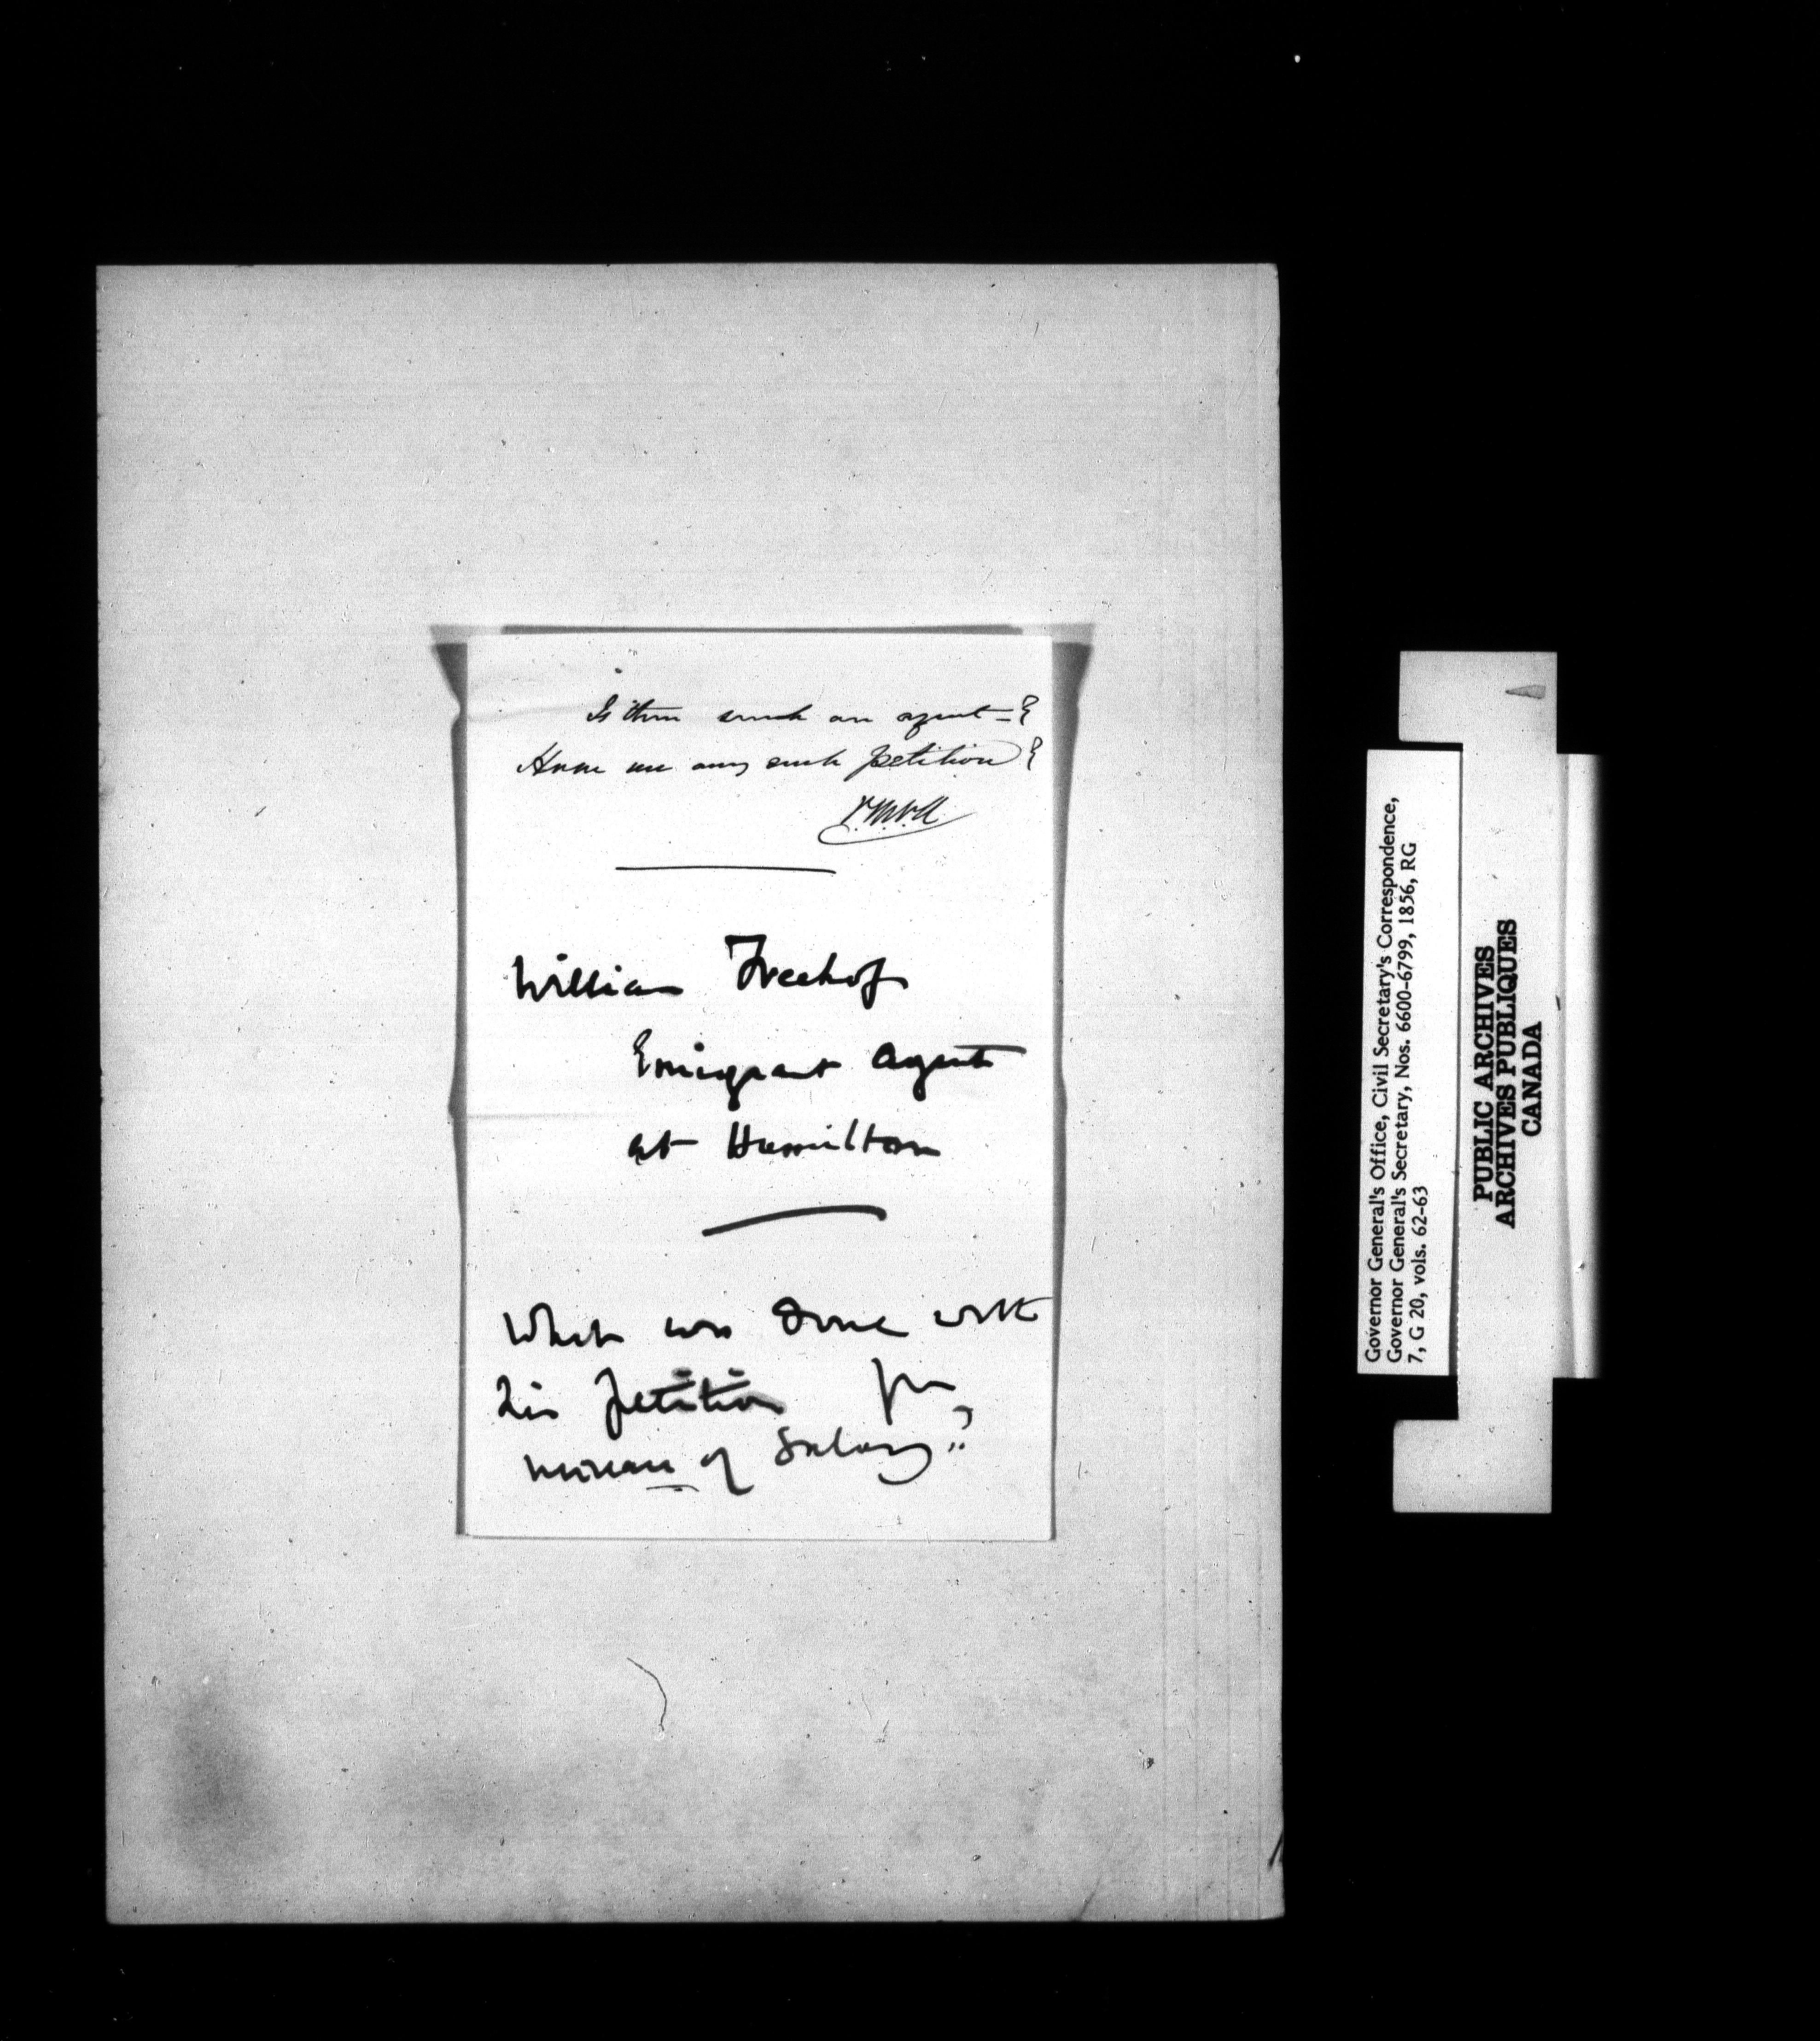 Is there such an agent –?
Have we any such petition?
William Freehof
Emigrant Agent
at Hamilton
What was done with
his petition for
increase of Salary?
Governor General's Office, Civil Secretary's Correspondence,
Governor General's Secretary, Nos. 6600-6799, 1856, RG
7, G 20, vols. 62-63
PUBLIC ARCHIVES
ARCHIVES PUBLIQUES
CANADA